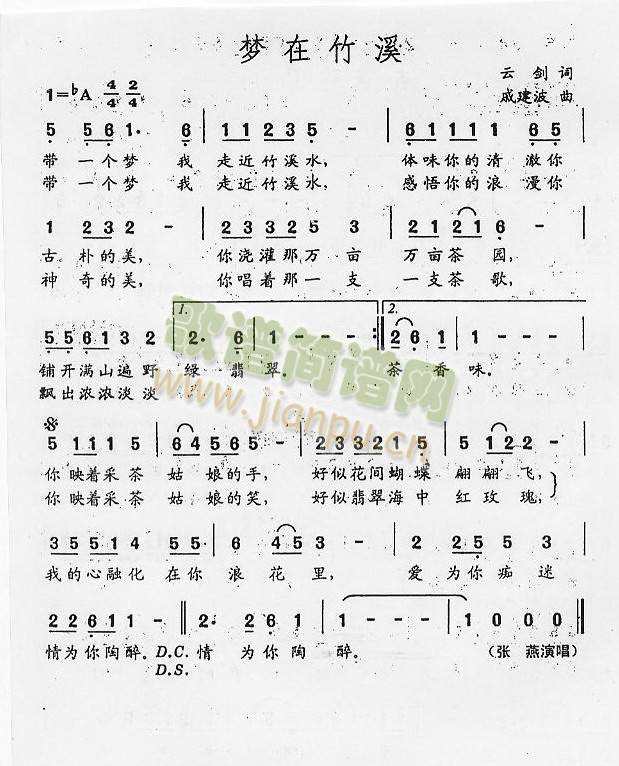 梦在竹溪
云剑词
1=♭A 4/4 2/4
戚建波 曲
5 5 6 1· 6 | 1 1 2 3 5 - | 6 1 1 1 1 6 5 |
带一个梦 我 走近竹溪水, 体味你的清澈你
带一个梦 我 走近竹溪水, 感悟你的浪漫你
1 2 3 2 - | 2 3 3 2 5 3 | 2 1 2 1 6 - |
古朴的美, 你浇灌那万亩 万亩茶园,
神奇的美, 你唱着那一支 一支茶歌,
1. 2.
5 5 6 1 3 2 | 2· 6 | 1 - - - :‖ 2 6 1 | 1 - - - |
铺开满山遍野 绿 翡 翠。 茶香味。
飘出浓浓淡淡
歌谱简谱网
www.jianpu.cn
5 1 1 1 5 | 6 4 5 6 5 - | 2 3 3 2 1 5 | 5 1 2 2 - |
你映着采茶 姑娘的手, 好似花间蝴蝶 翩翩飞,
你映着采茶 姑娘的笑, 好似翡翠海中 红玫瑰,
3 5 5 1 5 | 5 5· 6 | 6 4 5 3 - | 2 2 5 5 3 |
我的心融化 在你 浪花里, 爱为你痴迷
2 2 6 1 1 - ‖ 2· 6 | 1 - - - | 1 0 0 0 ‖
情为你陶醉。D.C. 情 为你陶 醉。 (张燕演唱)
D.S.